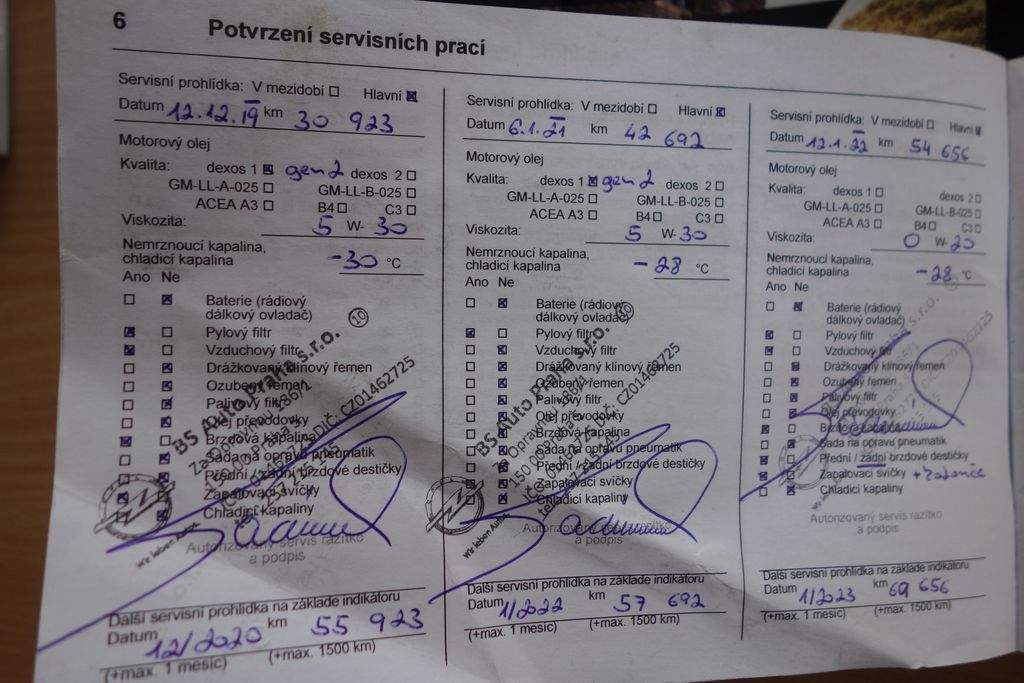 6
Potvrzení servisních prací
Servisní prohlídka: V mezidobí Hlavní
Datum 12.12.19 km 30 923
Motorový olej
Kvalita: dexos 1 gen2 dexos 2
GM-LL-A-025 GM-LL-B-025
ACEA A3 B4 C3
Viskozita: 5 W- 30
Nemrznoucí kapalina,
chladicí kapalina -30 °C
Ano Ne
Baterie (rádiový
dálkový ovladač)
Pylový filtr
Vzduchový filtr
Drážkovaný klínový řemen
Ozubený řemen
Palivový filtr
Olej převodovky
Brzdová kapalina
Sada na opravu pneumatik
Přední / zadní brzdové destičky
Zapalovací svíčky
Chladicí kapaliny
10
BS Auto Praha s.r.o.
DIČ: CZ01462725
Wir leben Autos
Autorizovaný servis razítko
a podpis
Další servisní prohlídka na základě indikátoru
Datum 12/2020 km 55 923
(+max. 1 měsíc) (+max. 1500 km)
Servisní prohlídka: V mezidobí Hlavní
Datum 6.1.21 km 42 692
Motorový olej
Kvalita: dexos 1 gen2 dexos 2
GM-LL-A-025 GM-LL-B-025
ACEA A3 B4 C3
Viskozita: 5 W- 30
Nemrznoucí kapalina,
chladicí kapalina -28 °C
Ano Ne
Baterie (rádiový
dálkový ovladač)
Pylový filtr
Vzduchový filtr
Drážkovaný klínový řemen
Ozubený řemen
Palivový filtr
Olej převodovky
Brzdová kapalina
Sada na opravu pneumatik
Přední / zadní brzdové destičky
Zapalovací svíčky
Chladicí kapaliny
BS Auto Praha s.r.o.
DIČ: CZ01462725
Wir leben Autos
Autorizovaný servis razítko
a podpis
Další servisní prohlídka na základě indikátoru
Datum 1/2022 km 57 692
(+max. 1 měsíc) (+max. 1500 km)
Servisní prohlídka: V mezidobí Hlavní
Datum 12.1.22 km 54 656
Motorový olej
Kvalita: dexos 1 dexos 2
GM-LL-A-025 GM-LL-B-025
ACEA A3 B4 C3
Viskozita: 0 W- 20
Nemrznoucí kapalina,
chladicí kapalina -28 °C
Ano Ne
Baterie (rádiový
dálkový ovladač)
Pylový filtr
Vzduchový filtr
Drážkovaný klínový řemen
Ozubený řemen
Palivový filtr
Olej převodovky
Brzdová kapalina
Sada na opravu pneumatik
Přední / zadní brzdové destičky
Zapalovací svíčky
Chladicí kapaliny
Autorizovaný servis razítko
a podpis
Další servisní prohlídka na základě indikátoru
Datum 1/2023 km 69 656
(+max. 1 měsíc) (+max. 1500 km)